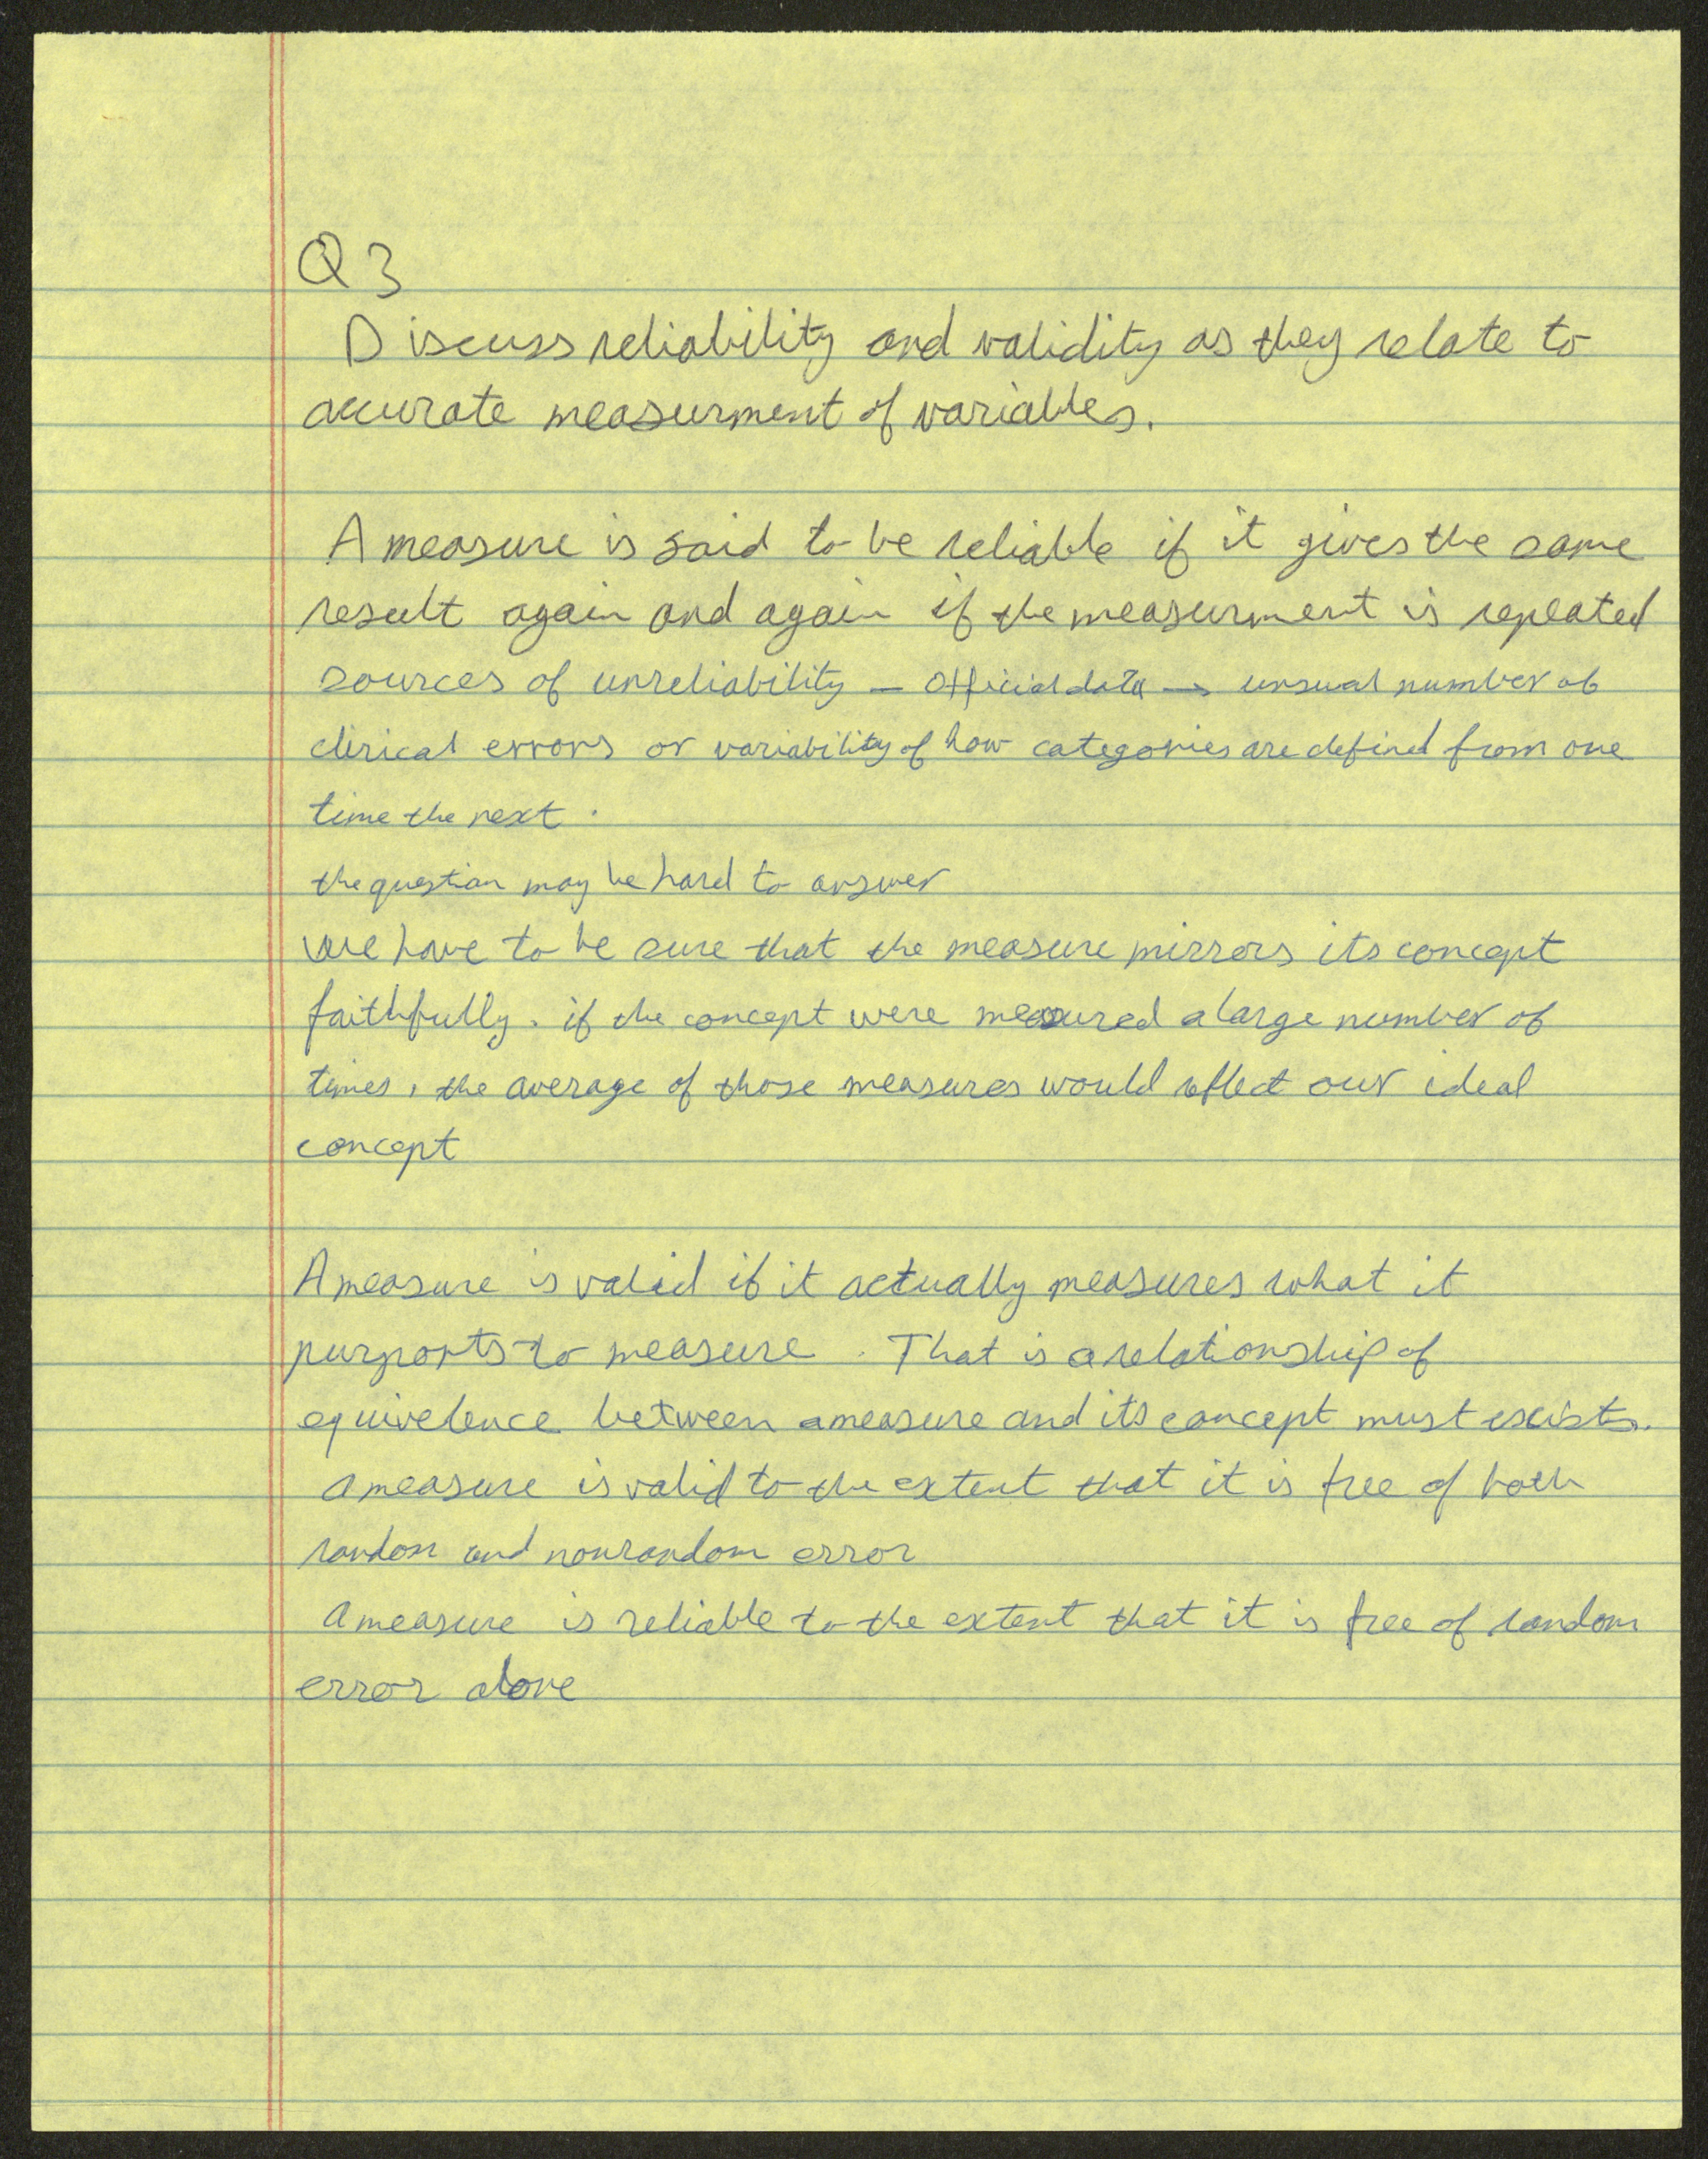 Q3
Discuss reliability and validity as they relate to
accurate measurment of variables.
A measure is said to be reliable if it gives the same
result again and again if the measurment is repeated
sources of unreliability – Official data → unsual number of
clirical errors or variability of how categories are defined from one
time the next.
the question may be hard to answer
We have to be sure that the measure mirrors its concept
faithfully. if the concept were measured a large number of
times, the average of those measures would reflect our ideal
concept
A measure is valid if it actually measures what it
purports to measure. That is a relationship of
equivelence between a measure and its concept must exists.
a measure is valid to the extent that it is free of both
random and nonrandom error
a measure is reliable to the extent that it is free of random
error alone